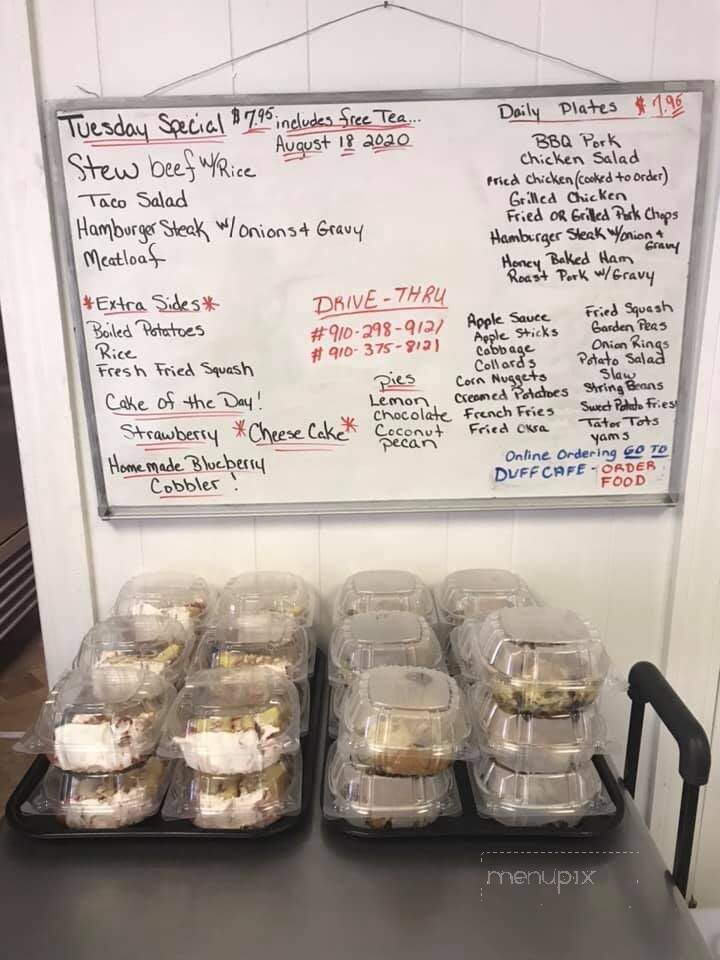 Tuesday Special $7.95 includes free Tea...
August 18 2020
Stew beef w/Rice
Taco Salad
Hamburger Steak w/onions + Gravy
Meatloaf
Daily Plates $7.95
BBQ Pork
Chicken Salad
Fried Chicken (cooked to order)
Grilled Chicken
Fried OR Grilled Pork Chops
Hamburger Steak w/onion +
Gravy
Honey Baked Ham
Roast Pork w/Gravy
*Extra Sides*
Boiled Potatoes
Rice
Fresh Fried Squash
Cake of the Day!
Strawberry *Cheese Cake*
Homemade Blueberry
Cobbler!
DRIVE-THRU
#910-298-9121
#910-375-8121
pies
Lemon
chocolate
Coconut
pecan
Apple Sauce
Apple Sticks
Cabbage
Collards
Corn Nuggets
Creamed Potatoes
French Fries
Fried Okra
Fried Squash
Garden Peas
Onion Rings
Potato Salad
Slaw
String Beans
Sweet Potato Fries
Tator Tots
yams
Online Ordering GO TO
DUFFCAFE - ORDER
FOOD
menupix